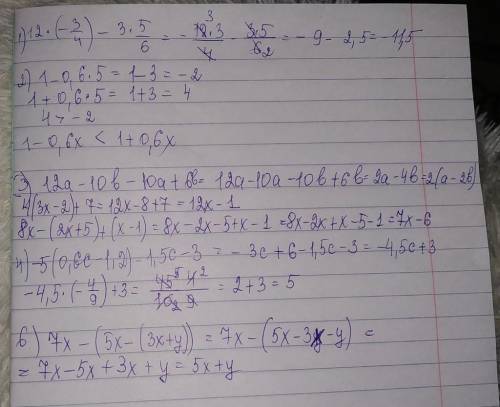 1) 12·(-3/4) - 3·5/6 = - 12·3/4 - 3·5/6 = -9 - 2,5 = -11,5
2) 1-0,6·5 = 1-3 = -2
1+0,6·5 = 1+3 = 4
4 > -2
1-0,6x < 1+0,6x
3) 12a-10b-10a+6b = 12a-10a-10b+6b = 2a-4b = 2(a-2b)
4(3x-2)+7 = 12x-8+7 = 12x-1
8x-(2x+5)+(x-1) = 8x-2x-5+x-1 = 8x-2x+x-5-1 = 7x-6
4) -5(0,6c-1,2)-1,5c-3 = -3c+6-1,5c-3 = -4,5c+3
-4,5·(-4/9)+3 = 45·4/10·9 = 2+3 = 5
6) 7x-(5x-(3x+y)) = 7x-(5x-3x-y) =
= 7x-5x+3x+y = 5x+y